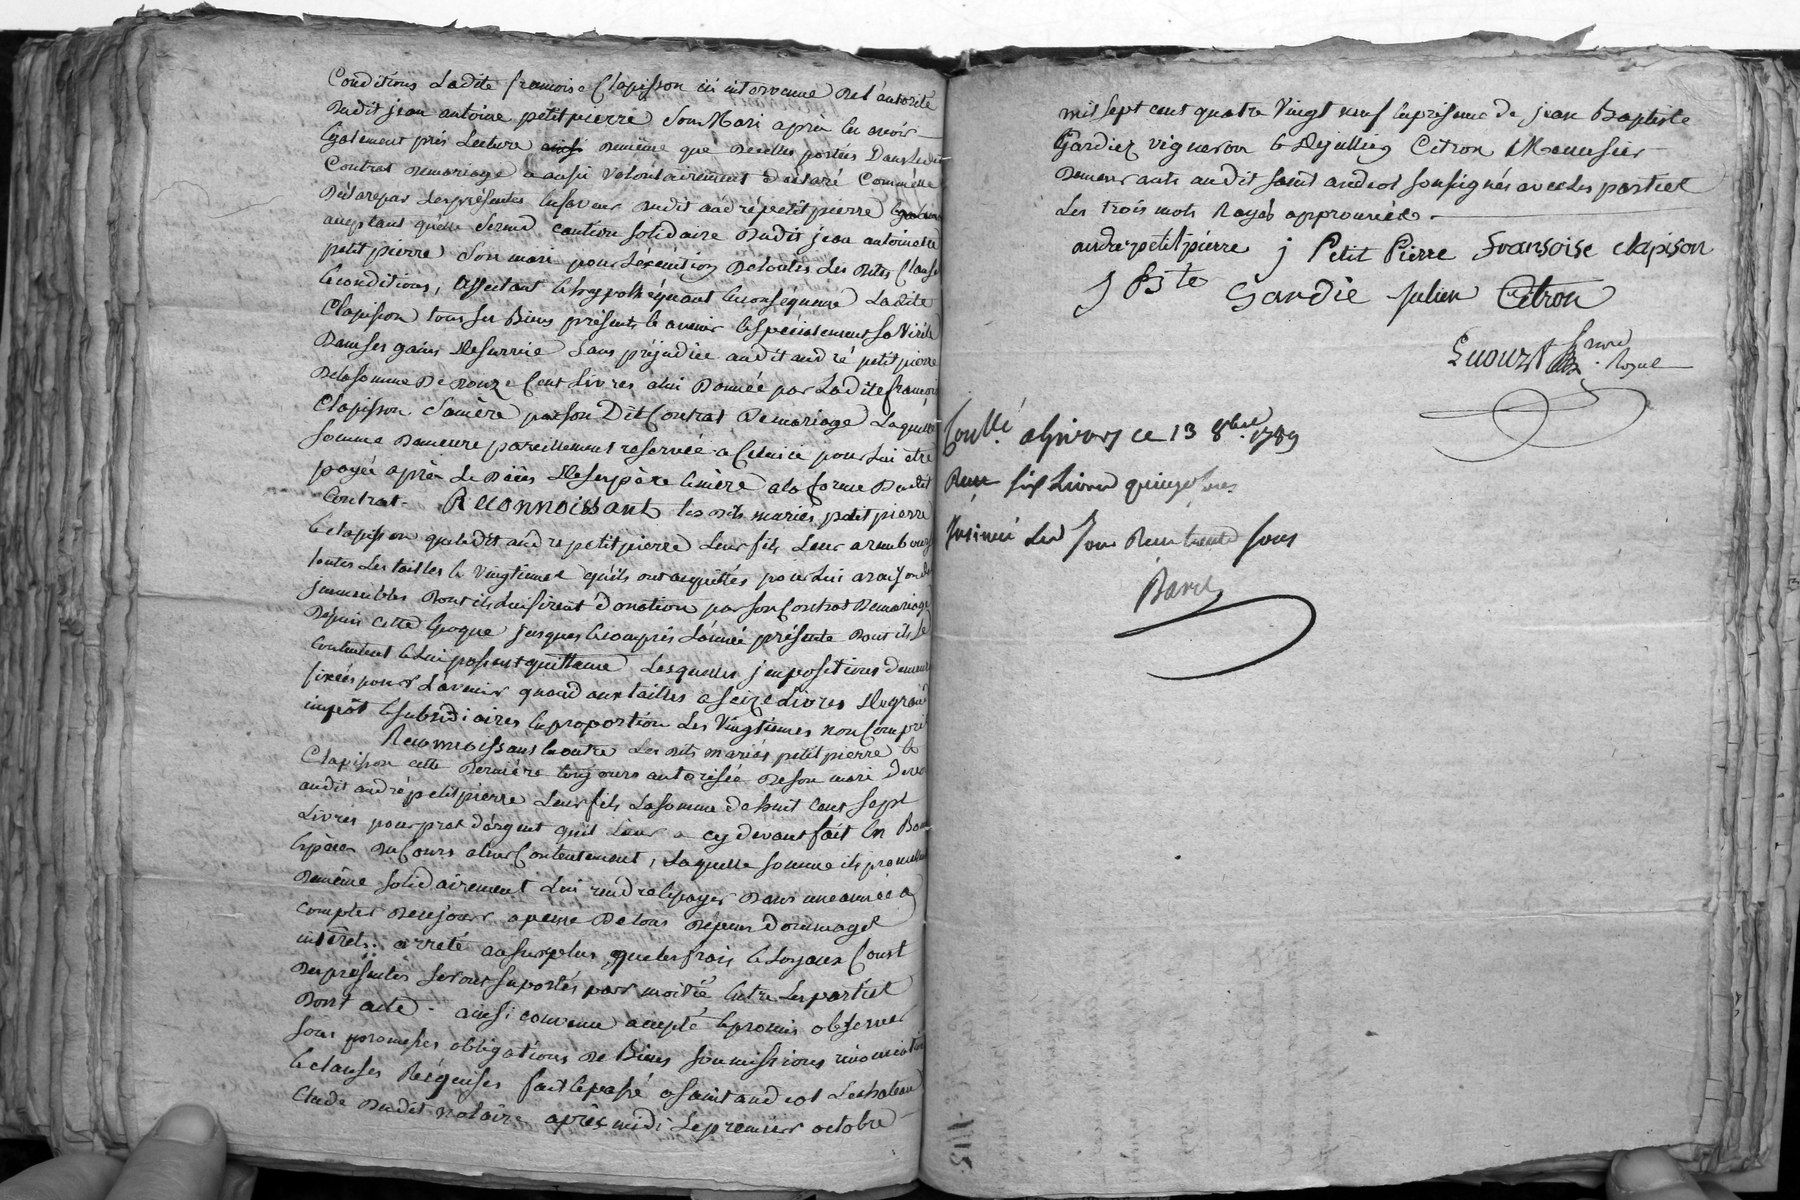 Conditions Ladite francoise Clapisson ici intervenue De l'autorité
Dudit jean antoine petitpierre Son Mari après lui avoir
Egalement pris Lecture Demême que Decelles portées Dans Ledit
Contrat Demariage a aussi volontairement déclaré Comme elle
Déclare par Les présentes En faveur dudit andré petitpierre
acceptant qu'elle Serend caution Solidaire Dudit jean antoine
petitpierre Son mari pour L'exécution De toutes Les dites Clauses
Et conditions, affectant Et hypothéquant En conséquence Ladite
Clapisson tous ses Biens présents Et avenir Et spécialement Sa Virile
Dans ses gains De survie Sans préjudice audit andré petitpierre
De la somme De Douze Cent Livres a lui Donnée par Ladite francoise
Clapisson Sa mère par son Dit Contrat De mariage Laquelle
somme Demeure pareillement reservée a Celui ci pour Lui être
payée après Le Décès De ses père Et mère a la forme Dudit
Contrat. Reconnoissant les dits mariés petitpierre
Et clapisson que ledit andré petitpierre Leur fils Leur a remboursé
toutes Les tailles Et Vingtiemes qu'ils ont acquittés pour Lui a raison des
immeubles Dont ils Lui firent donation par son Contrat Demariage
Depuis cette Epoque jusques Et compris L'année présente Dont ils Se
Contentent Et Lui passent quittance Lesquelles impositions demeurent
fixées pour L'avenir quand aux tailles a seize Livres De grand
impôt Et subsidiaires En proportion Les Vingtiemes non Compris
Reconnoissans En outre Les dits mariés petitpierre Et
Clapisson cette Derniére toujours autorisée De son mari devoir
audit andré petitpierre Leur fils La somme de huit Cent Sept
Livres pour pret d'argent qu'il Leur a cy devant fait En Bonnes
Espèces Du Cours a leur Contentement, Laquelle somme ils promettent
De même solidairement Lui rendre Et payer Dans une année a
compter De ce jour a peine De tous Depens Dommages
intérets. arreté au surplus que les frais Et Loyaux Cout
Des présentes seront suportés par moitié Entre Les parties
Dont acte. ainsi convenu accepté Et promis observer
sous promesses obligations De Biens soumissions rénonciations
Et clauses Réquises fait Et passé a saint andeol Lechateau
Etude Dudit notaire après midi Le premier octobre
mil sept cent quatre Vingt neuf En présence de jean Baptiste
Gardiez vigneron Et De jullien Citron Menusier
Demeurants audit saint andeol soussignés avec Les parties
Les trois mots Rayés approuvés
andre petitpierre j Petit Pierre Fransoise clapison
J Bste Gardie julien Citron
Not. Royal
Conllé. a Givors ce 13 8bre 1789
Reçu six Livres quinze sous
Insinué Led Jour Reçu trente sous